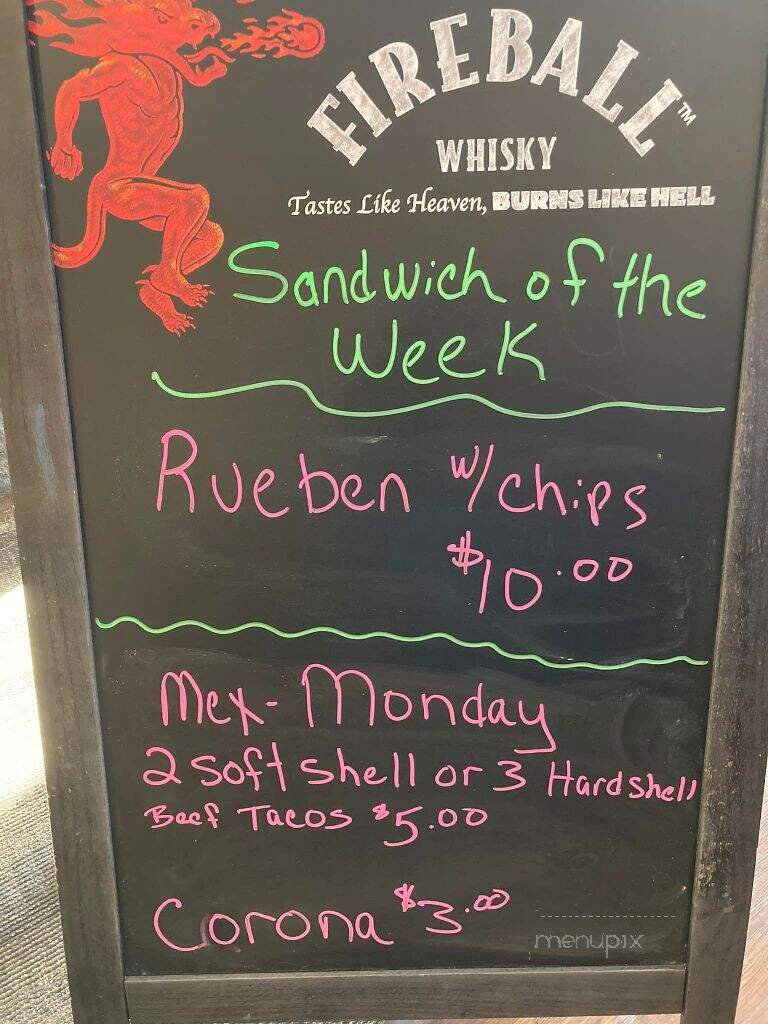 FIREBALL™
WHISKY
Tastes Like Heaven, BURNS LIKE HELL
Sandwich of the
Week
Rueben w/chips
$10.00
Mex-Monday
2 soft shell or 3 Hardshell
Beef Tacos $5.00
Corona $3.00
menupix